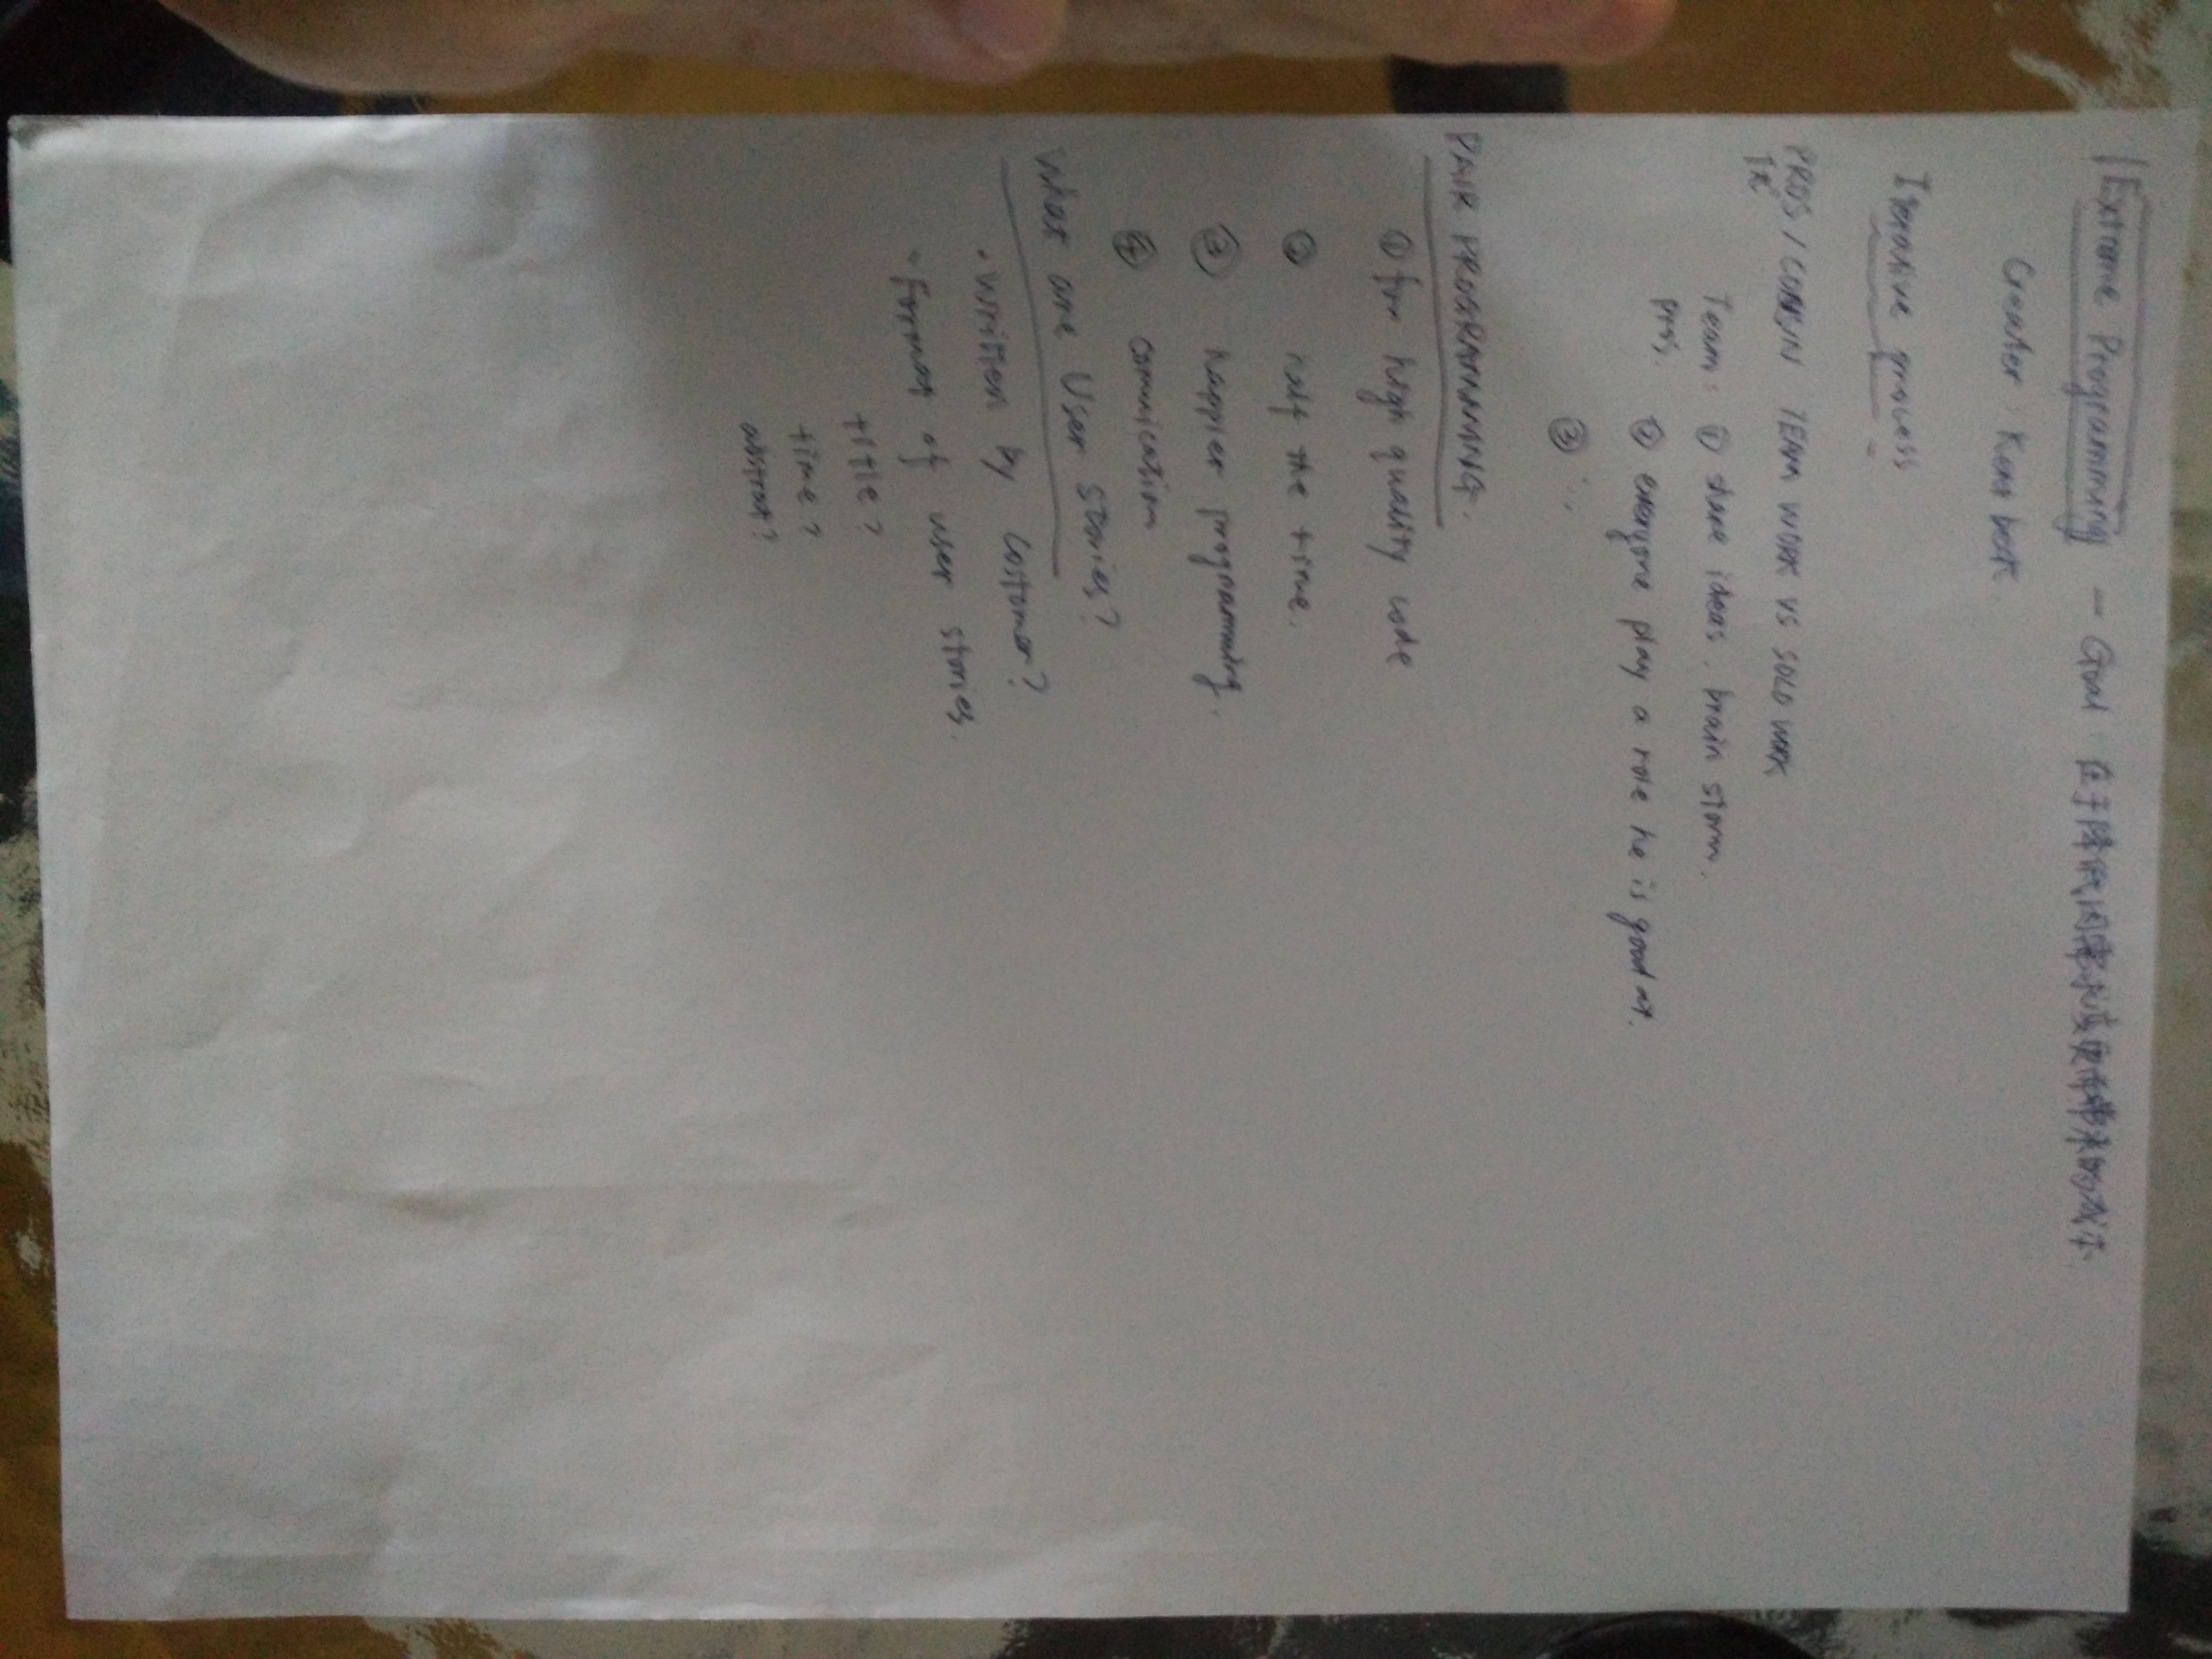 Extreme Programming - Goal 在于降低因需求变更带来的成本.
Creater: Kent beck
Iterative process
PROS / CON IN TEAM WORK VS SOLO WORK
Team: ① share ideas, brain storm.
pros. ② everyone play a role he is good at.
③ ...
PAIR PROGRAMMING.
① for high quality code
② half the time.
③ happier programming.
④ comunication
What are User stories?
· written by costomer?
· Format of user stories.
title?
time?
abstrat?